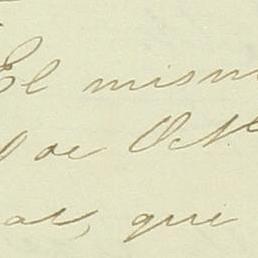 El mism
de Oct
as, que